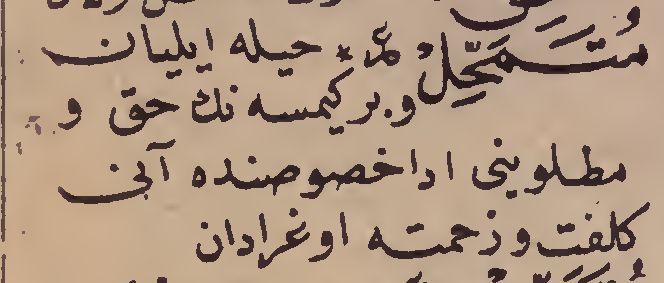 مُتَمَحِّل * حيله ايليان
و بر كيمسه نك حق و
مطلوبنى ادا خصوصنده آنى
كلفت و زحمته اوغرادان